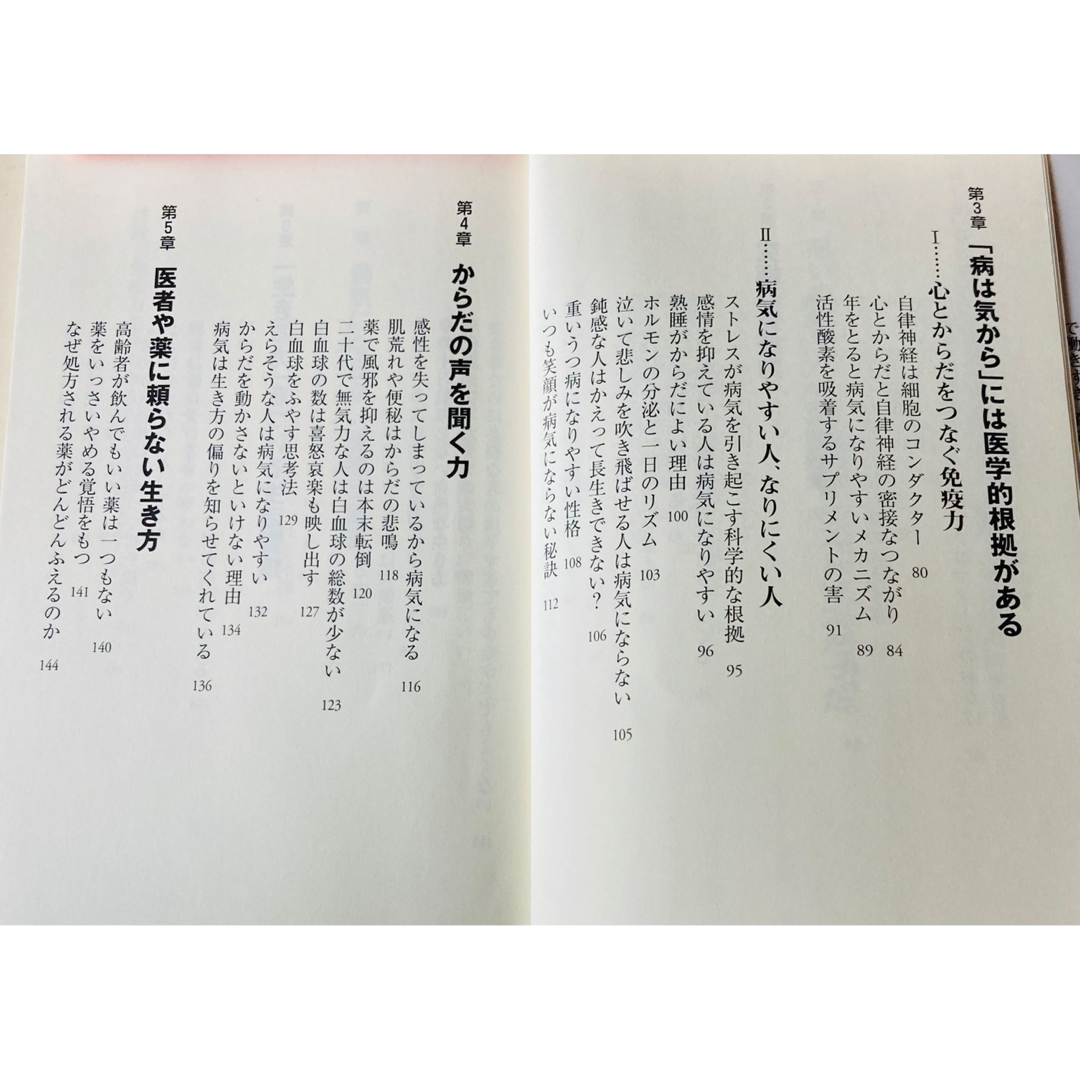 第3章 「病は気から」には医学的根拠がある
Ⅰ……心とからだをつなぐ免疫力
自律神経は細胞のコンダクター 80
心とからだと自律神経の密接なつながり 84
年をとると病気になりやすいメカニズム 89
活性酸素を吸着するサプリメントの害 91
Ⅱ……病気になりやすい人、なりにくい人
ストレスが病気を引き起こす科学的な根拠 95
感情を抑えている人は病気になりやすい 96
熟睡がからだによい理由 100
ホルモンの分泌と一日のリズム 103
泣いて悲しみを吹き飛ばせる人は病気にならない 105
鈍感な人はかえって長生きできない？ 106
重いうつ病になりやすい性格 108
いつも笑顔が病気にならない秘訣 112
第4章 からだの声を聞く力
感性を失ってしまっているから病気になる 116
肌荒れや便秘はからだの悲鳴 118
薬で風邪を抑えるのは本末転倒 120
二十代で無気力な人は白血球の総数が少ない 123
白血球の数は喜怒哀楽も映し出す 127
白血球をふやす思考法 129
えらそうな人は病気になりやすい 132
からだを動かさないといけない理由 134
病気は生き方の偏りを知らせてくれている 136
第5章 医者や薬に頼らない生き方
高齢者が飲んでもいい薬は一つもない 140
薬をいっさいやめる覚悟をもつ 141
なぜ処方される薬がどんどんふえるのか 144